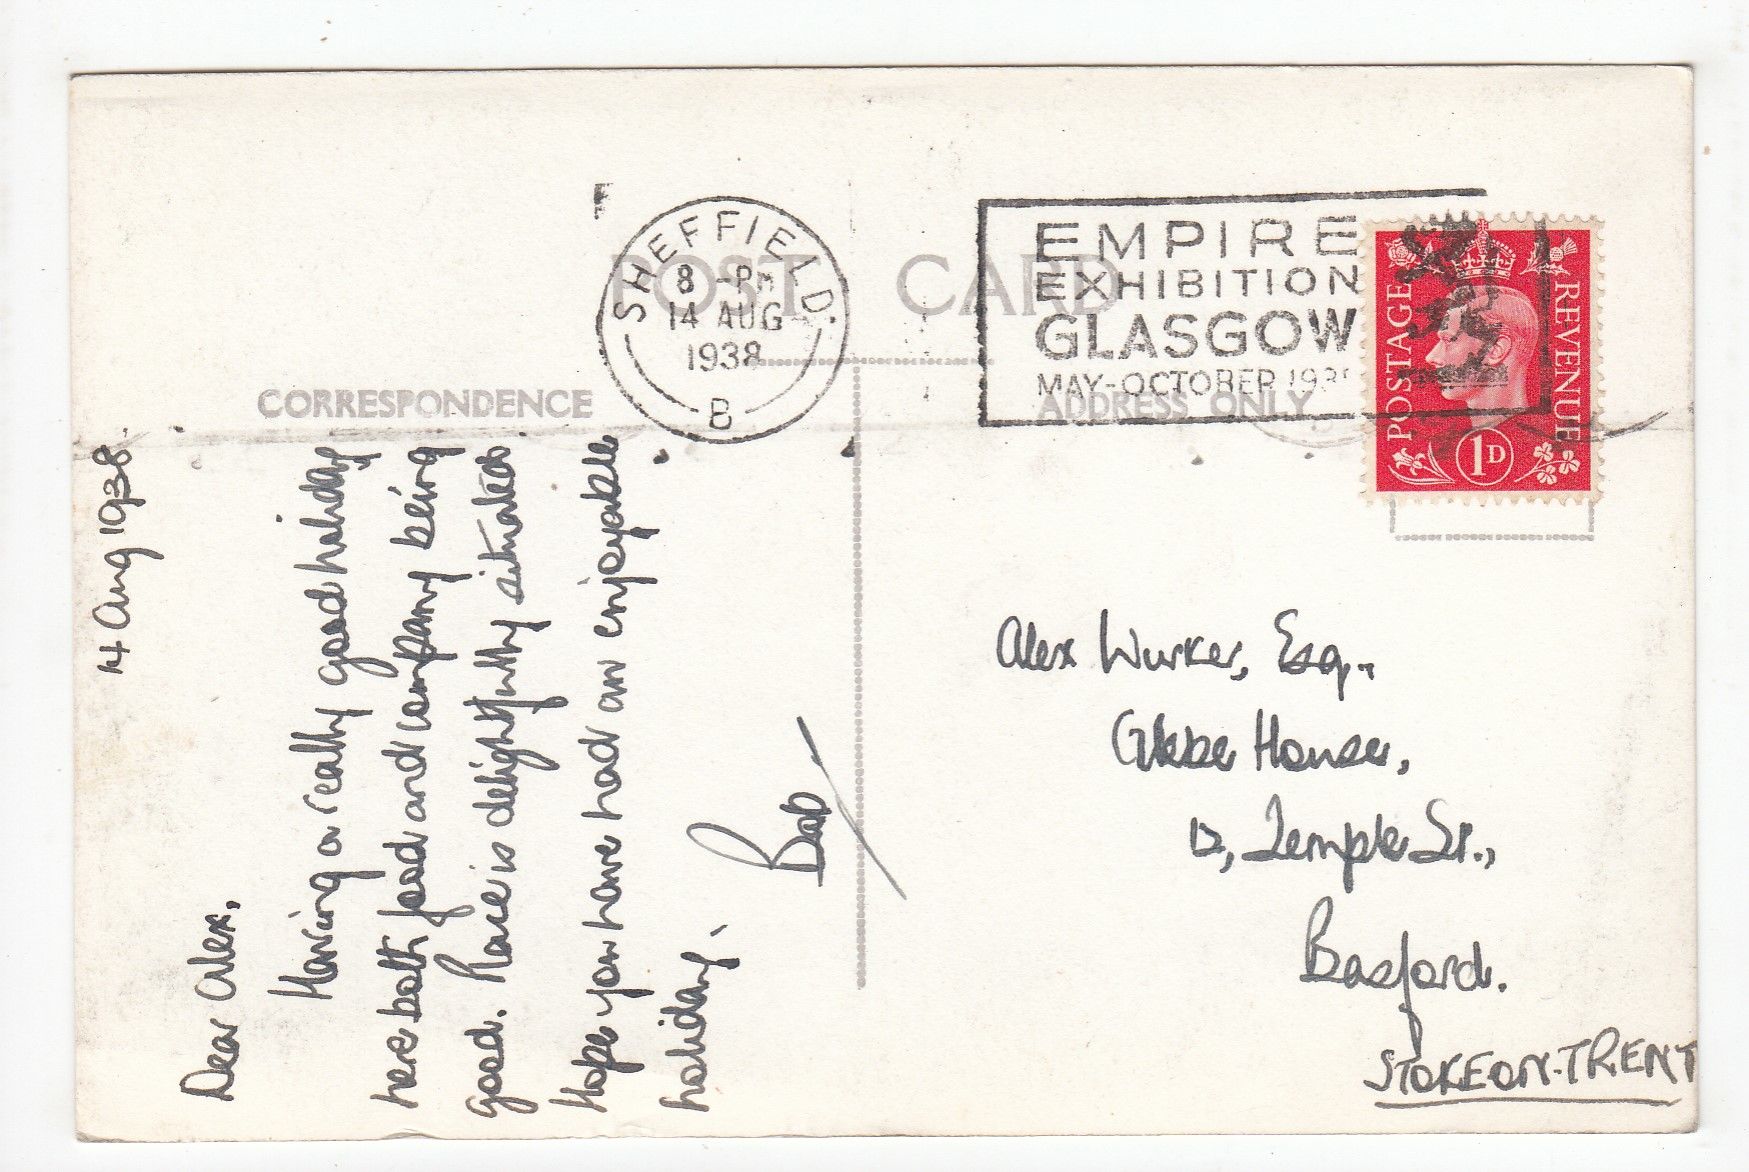 POST CARD
CORRESPONDENCE
ADDRESS ONLY
SHEFFIELD.
8 - PM
14 AUG
1938
B
EMPIRE
EXHIBITION
GLASGOW
MAY-OCTOBER 193
POSTAGE
REVENUE
1D
14 Aug 1938.
Dear Alex,
Having a really good holiday
here both food and company being
good. Place is delightfully situated
Hope you have had an enjoyable
holiday.
Bob
Alex Wurker, Esq.,
Glebe House,
12, Temple St.,
Basford.
STOKE-ON-TRENT